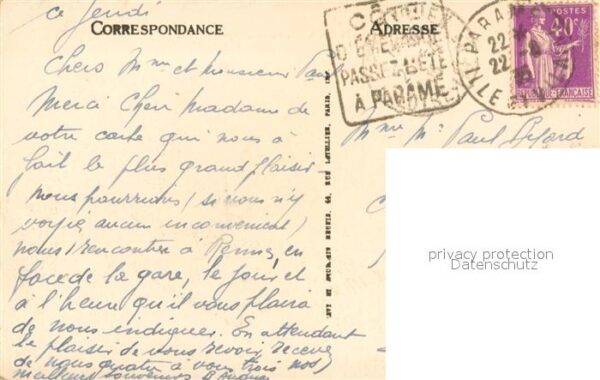 ce Jeudi
CORRESPONDANCE
ADRESSE
Chers Mme et Monsieur Paul
Merci Chère madame de
votre carte qui nous a
fait le plus grand plaisir
nous pourrions (si vous n'y
voyiez aucun inconvénient)
nous rencontrer à Rennes, en
face de la gare, le jour et
à l'heure qu'il vous plaira
de nous indiquer. En attendant
le plaisir de vous revoir, recevez
de nous quatre à vous trois nos
meilleurs souvenirs
D'ÉMERAUDE
PASSEZ L'ÉTÉ
À PARAMÉ
PARAMÉ
22
22
ILLE
POSTES
40c
RÉPUBLIQUE FRANÇAISE
Mme Mr Paul
RUE LATELLIER, PARIS
privacy protection
Datenschutz